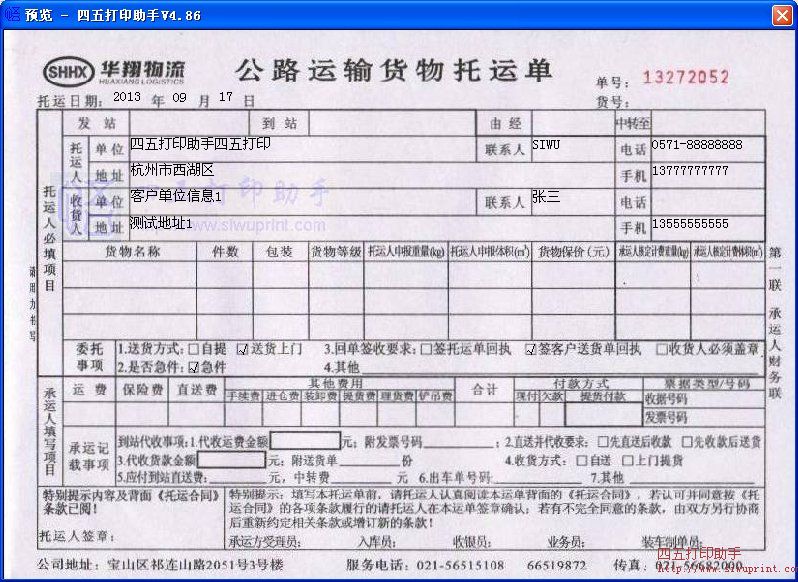 预览 - 四五打印助手V4.86
SHHX 华翔物流 公路运输货物托运单 单号: 13272052
HUAXIANG LOGISTICS
托运日期: 2013 年 09 月 17 日 货号:
发站 到站 由经 中转至
托运人 单位 四五打印助手四五打印 联系人 SIWU 电话 0571-88888888
地址 杭州市西湖区 手机 13777777777
收货人 单位 客户单位信息1 联系人 张三 电话
地址 测试地址1 手机 13555555555
四五打印助手
www.siwuprint.com
托运人必填项目
请用力书写
货物名称 件数 包装 货物等级 托运人申报重量(kg) 托运人申报体积(m³) 货物保价(元) 承运人核定计费重量(kg) 承运人核定计费体积(m³)
第一联 承运人财务联
委托事项 1.送货方式:□自提 ☑送货上门 3.回单签收要求:□签托运单回执 ☑签客户送货单回执 □收货人必须盖章
2.是否急件:☑急件 4.其他
承运人填写项目
运费 保险费 直送费 其他费用 合计 付款方式 票据类型/号码
手续费 进仓费 装卸费 提货费 理货费 铲吊费 现付 欠款 提货付款 收据号码
发票号码
承运记载事项 到站代收事项:1.代收运费金额 元; 附发票号码 ; 2.直送并代收要求: □先直送后收款 □先收款后送货
3.代收货款金额 元; 附送货单 份 4.收货方式: □自送 □上门提货
5.应付到站直送费: 元,中转费 元 6.出车单号码: 7.其他
特别提示内容及背面《托运合同》条款已阅!
托运人签章:
特别提示: 填写本托运单前, 请托运人认真阅读本运单背面的《托运合同》, 若认可并同意按《托
运合同》的各项条款履行的请托运人在本运单签章确认; 若有不完全同意的条款, 由双方另行协商
后重新约定相关条款或增订新的条款!
承运方受理员: 入库员: 收银员: 业务员: 装车制单员:
公司地址: 宝山区祁连山路2051号3号楼 服务电话: 021-56515108 66519872 传真: 021-56682000
四五打印助手
http://www.siwuprint.co